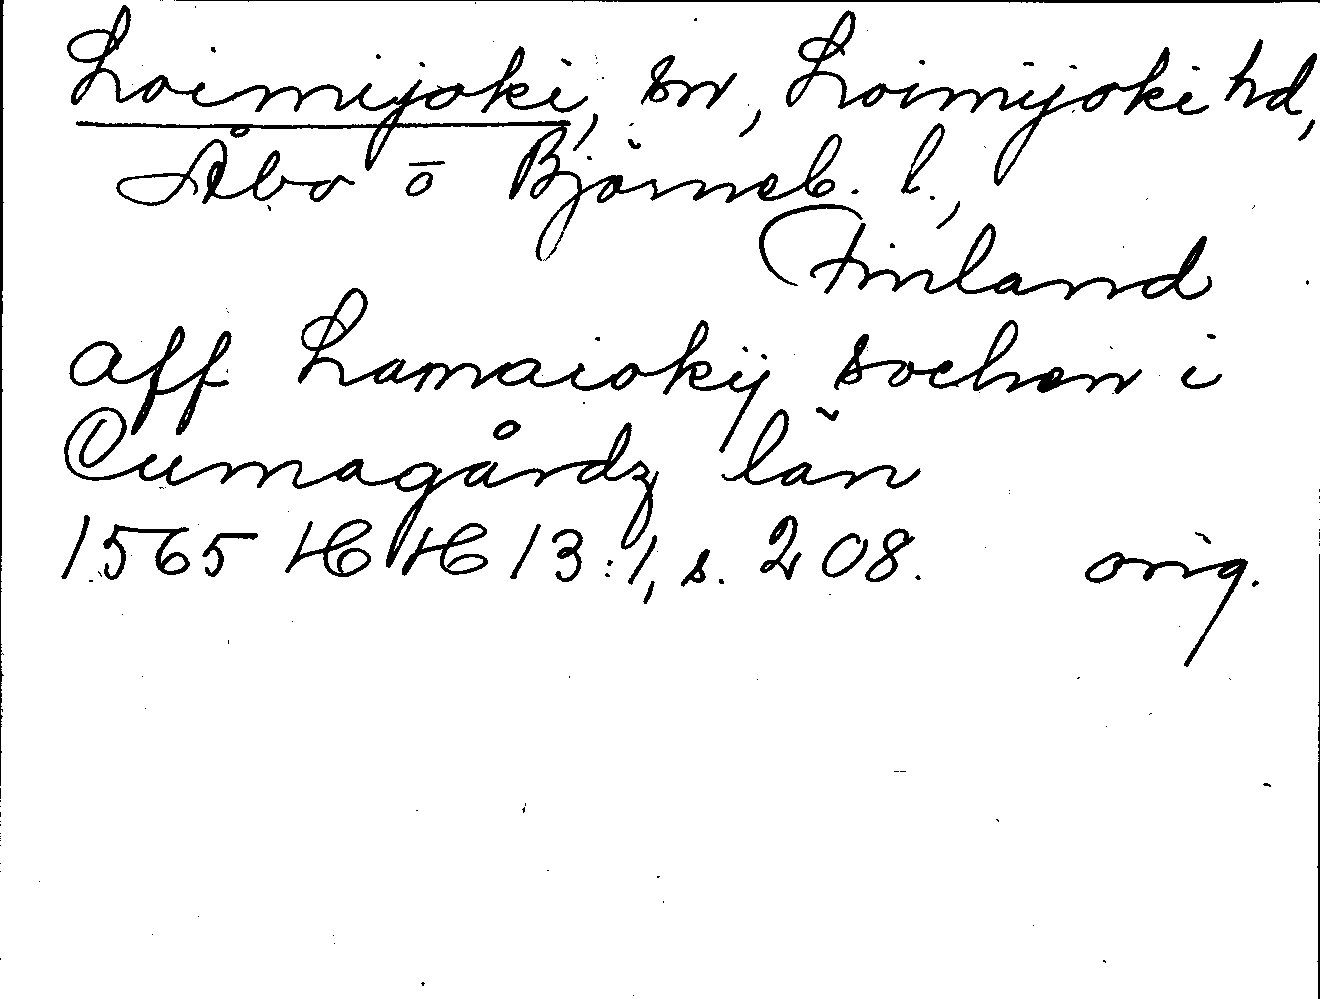 Loimijoki, sn, Loimijoki hd,
Åbo o Björneb. l.,
Finland
aff Lamaiokij sochen i
Cumagårdz län
1565 HH 13:1, s. 208. orig.